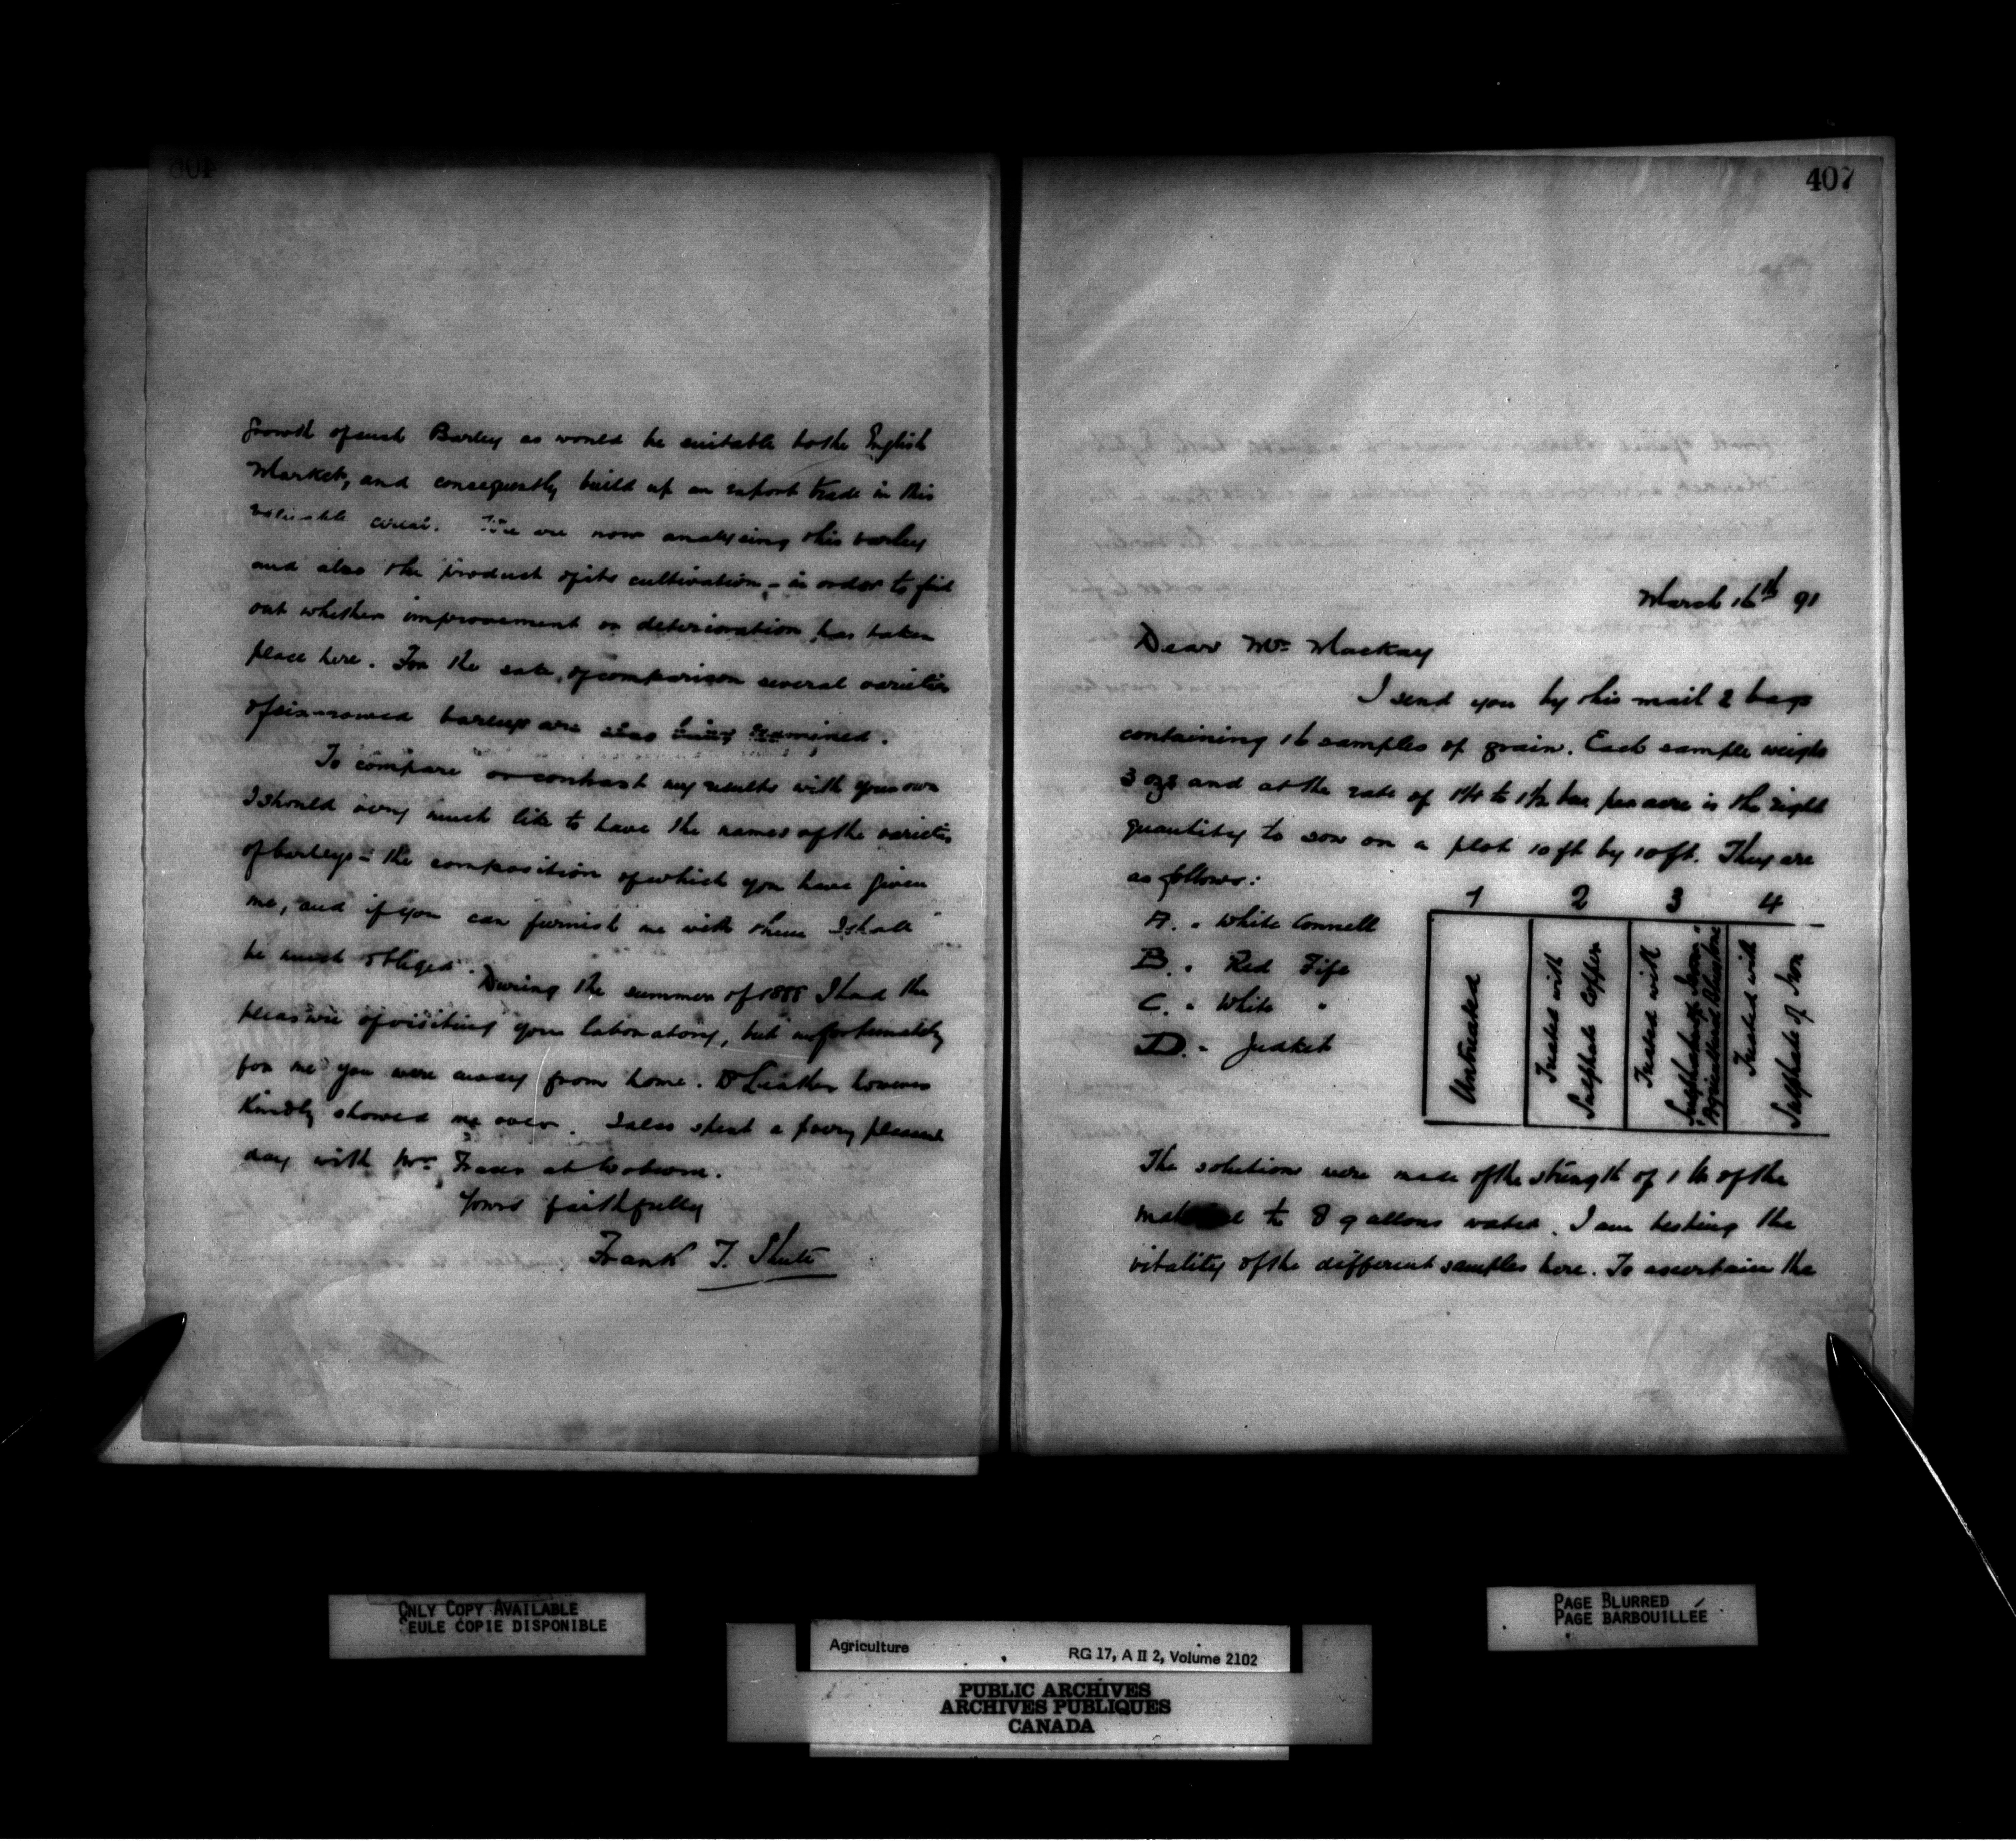 growth of such Barley as would be suitable to the English
Market, and consequently build up an export trade in this
valuable cereal. We are now analysing this barley
and also the product of its cultivation - in order to find
out whether improvement or deterioration has taken
place here. For the sake of comparison several varieties
of six-rowed barleys are also being examined.
To compare or contrast my results with your own
I should very much like to have the names of the varieties
of barleys - the composition of which you have given
me, and if you can furnish me with them I shall
be much obliged.
During the summer of 1888 I had the
pleasure of visiting your laboratory, but unfortunately
for me you were away from home. Dr Leather however
kindly showed me over. I also spent a very pleasant
day with Mr. Fraser at Woburn.
Yours faithfully
Frank T. Shutt
407
March 16th 91
Dear Mr. Mackay
I send you by this mail 2 bags
containing 16 samples of grain. Each sample weighs
3 ozs and at the rate of 1¼ to 1½ bus per acre is the right
quantity to sow on a plot 10 ft by 10 ft. They are
as follows:
A. - White Connell
B. - Red Fife
C. - White "
D. - Judket
1 2 3 4
Untreated
Treated with
Sulphate Copper
Treated with
Sulphate of Iron
Agricultural Bluestone
Treated with
Sulphate of Iron
The solutions were made of the strength of 1 lb of the
material to 8 gallons water. I am testing the
vitality of the different samples here. To ascertain the
ONLY COPY AVAILABLE
SEULE COPIE DISPONIBLE
PAGE BLURRED
PAGE BARBOUILLÉE
Agriculture
RG 17, A II 2, Volume 2102
PUBLIC ARCHIVES
ARCHIVES PUBLIQUES
CANADA